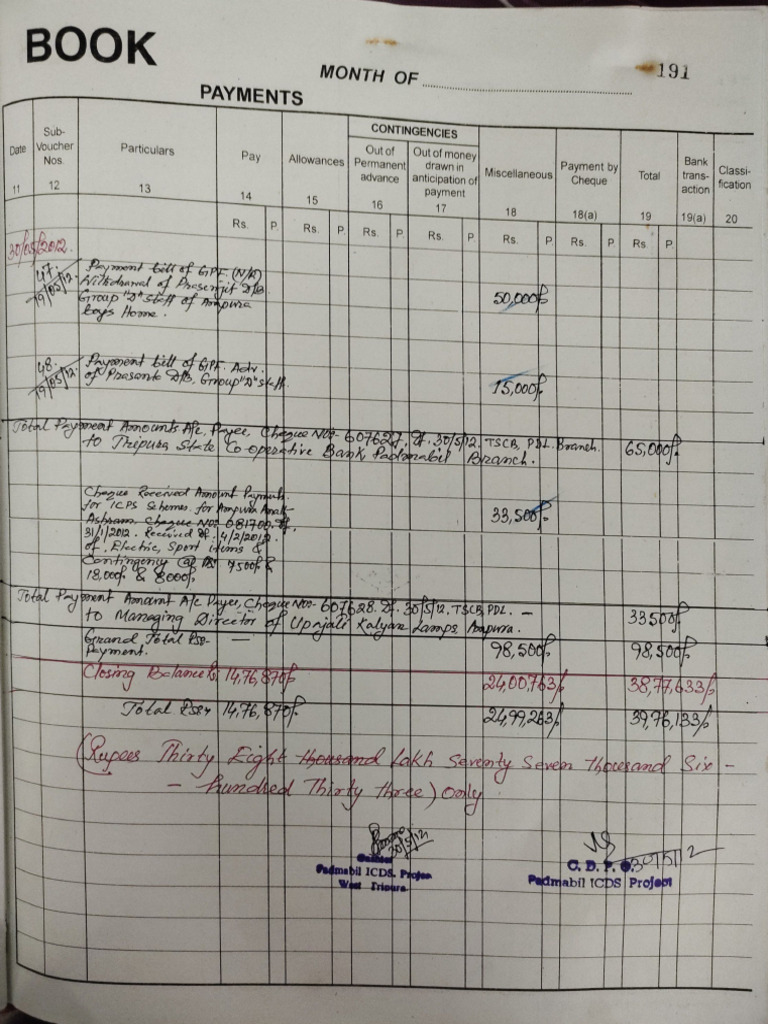 BOOK
MONTH OF
191
PAYMENTS
Date
Sub-Voucher Nos.
Particulars
Pay
Allowances
CONTINGENCIES
Out of Permanent advance
Out of money drawn in anticipation of payment
Miscellaneous
Payment by Cheque
Total
Bank trans-action
Classi-fication
11 12 13 14 15 16 17 18 18(a) 19 19(a) 20
Rs. P. Rs. P. Rs. P. Rs. P. Rs. P. Rs. P. Rs. P.
30/05/2012.
47. Payment bill of GPF. (N/R)
19/05/12. Withdrawal of Prasenjit D/B
Group "D" staff of Ampura 50,000/-
boys Home.
48. Payment bill of GPF. Adv.
19/05/12. of Prasanta D/B, Group "D" staff. 15,000/-
Total Payment Amounts A/c Payee, Cheque NOs- 607627, dt. 30/5/12. TSCB, PDL. Branch. 65,000/-
to Tripura State Co-operative Bank, Padmabil Branch.
Cheque Received Amount Payments
for ICPS Schemes. for Ampura Anath 33,500/-
Ashram. Cheque NOs- 081700. dt.
31/1/2012. Received dt. 4/2/2012.
of. Electric, Sport items &
Contingency @ Rs. 7500/- &
18,000/- & 8000/-
Total Payment Amount A/c Payee, Cheque NOs- 607628. dt. 30/5/12. TSCB, PDL. -
to Managing Director of Upajati Kalyan Lamps, Ampura. 33500/-
Grand Total Rs- — 98,500/- 98,500/-
Payment.
Closing Balance Rs. 14,76,870/- 24,00,763/- 38,77,633/-
Total Rs- 14,76,870/- 24,99,263/- 39,76,133/-
(Rupees Thirty Eight thousand Lakh Seventy Seven thousand Six -
- hundred Thirty three) only
30/5/12
Cashier
Padmabil ICDS. Projec
West Tripura
30/5/12
C. D. P. O.
Padmabil ICDS Project